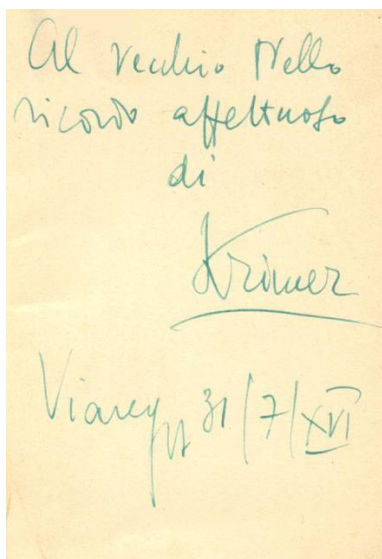 Al vecchio Nello
ricordo affettuoso
di
Krimer
Viareggio 31/7/XVI